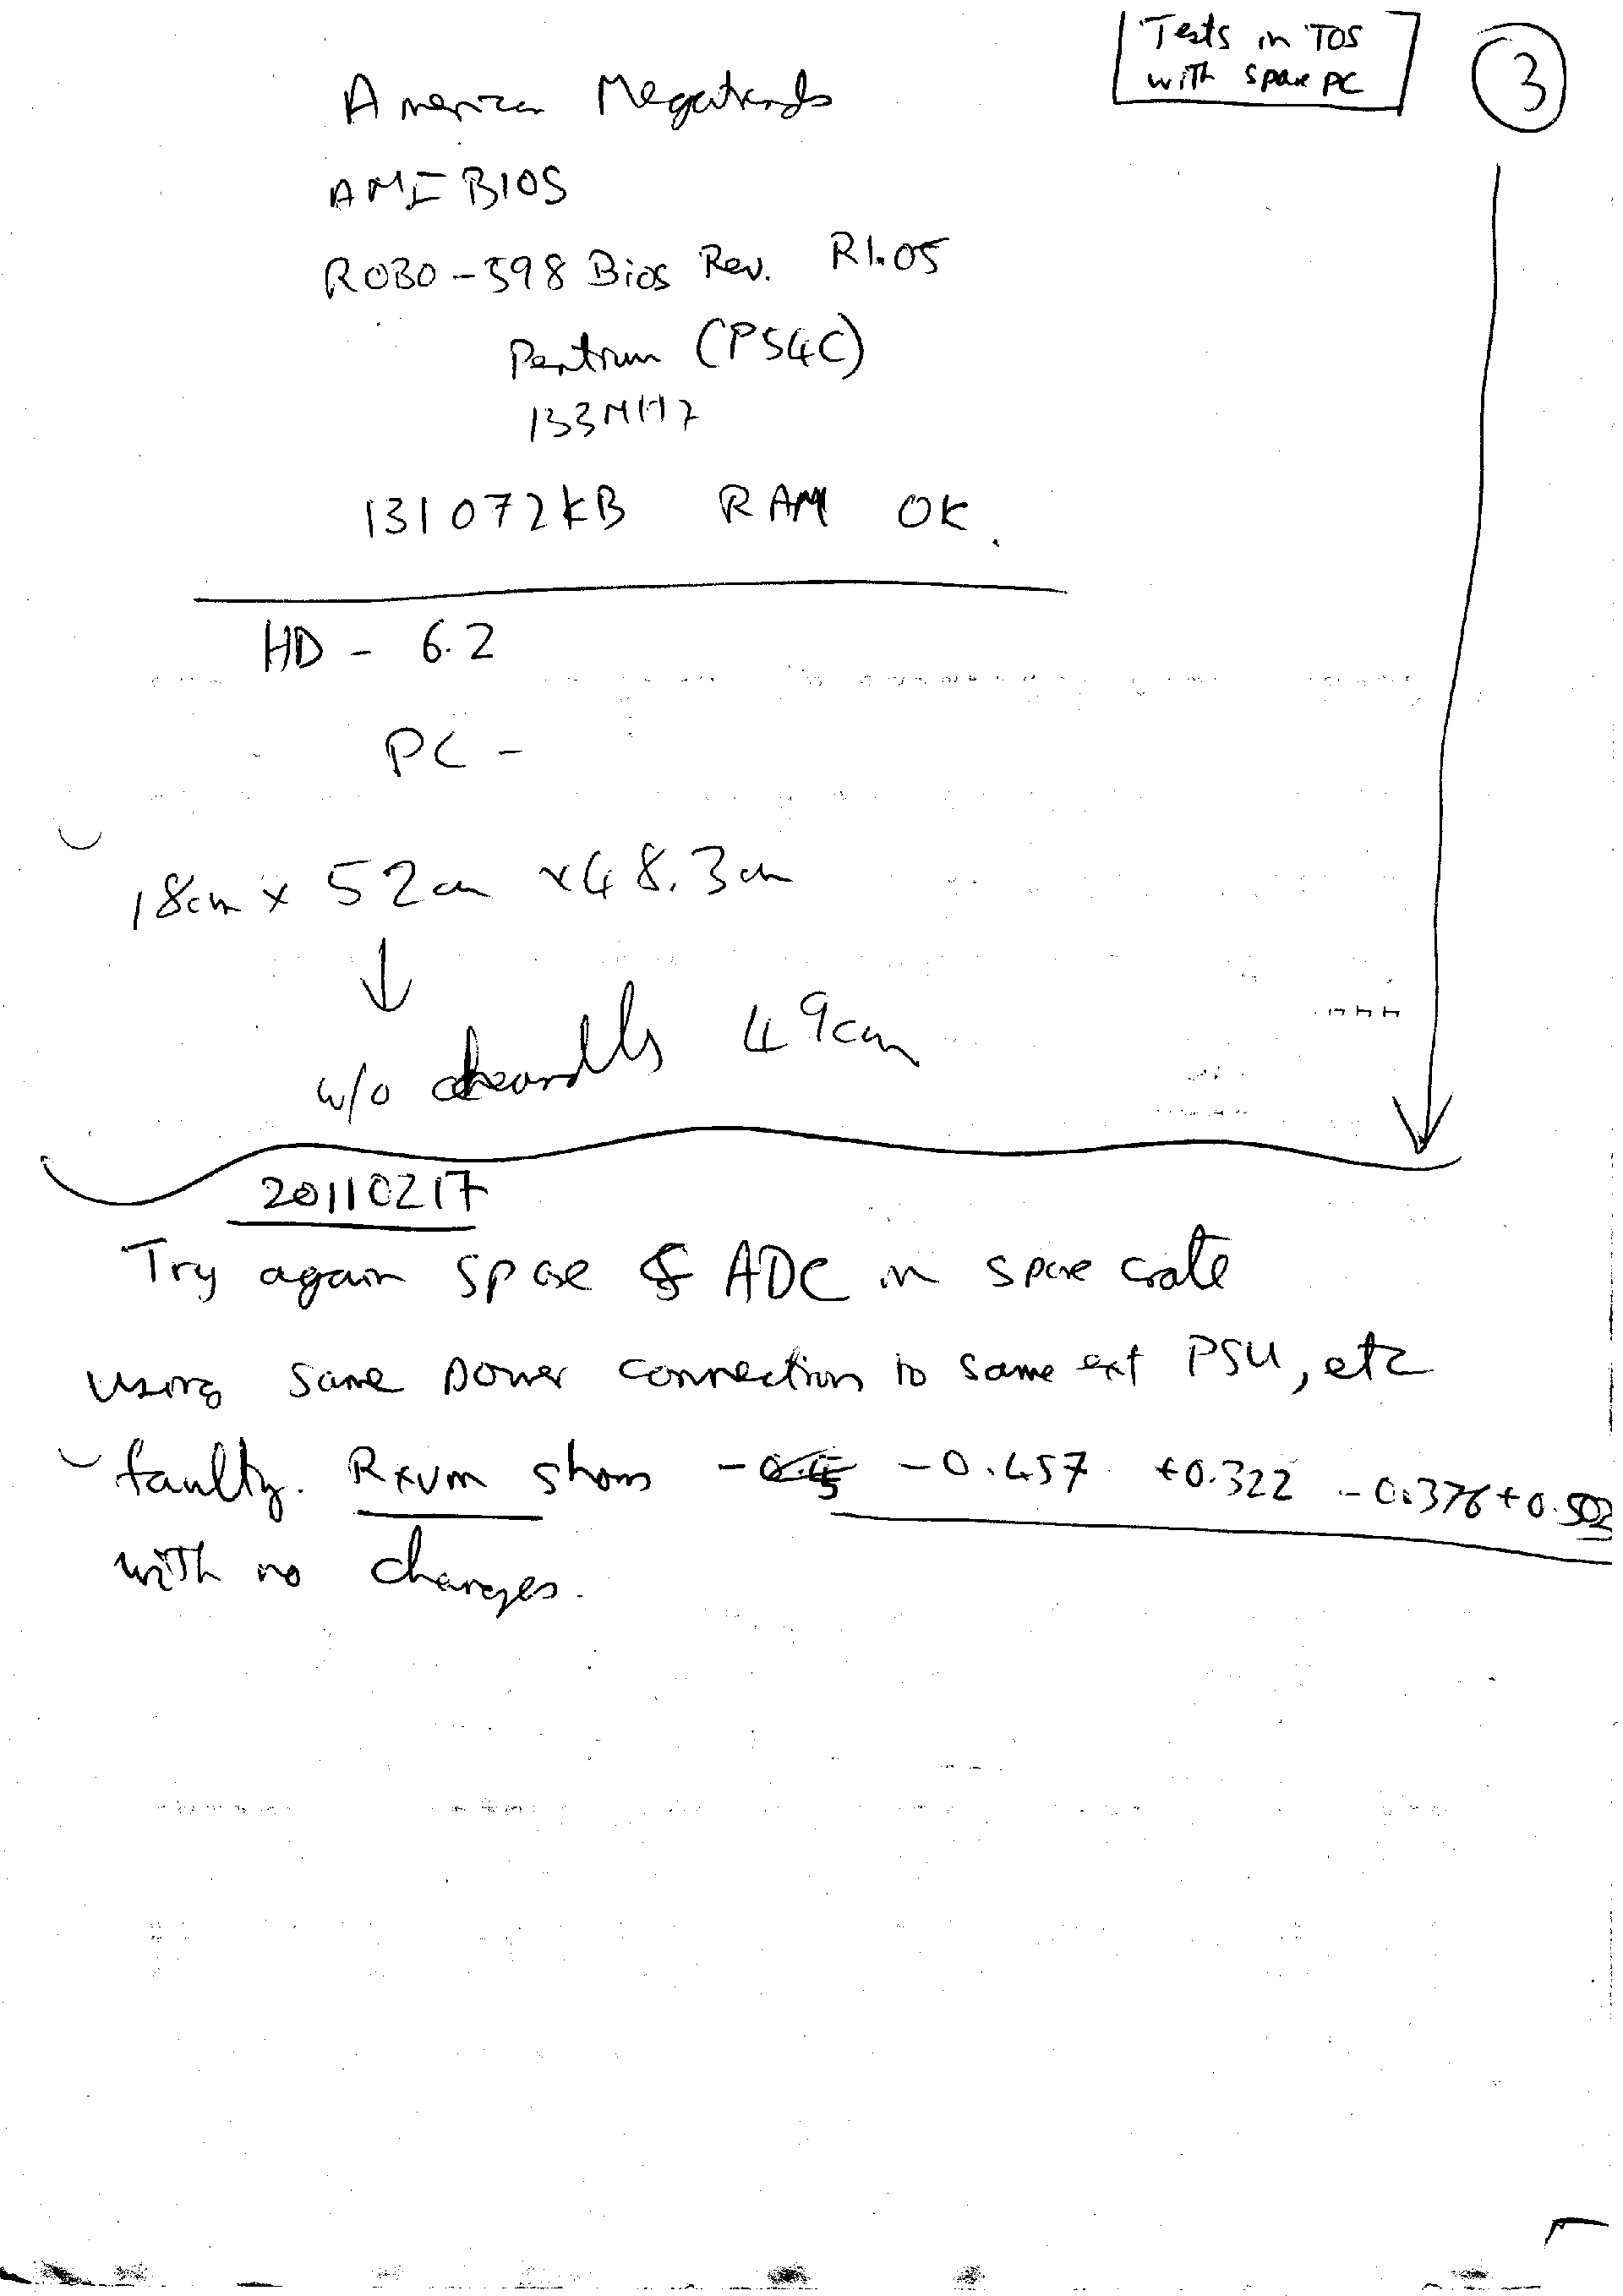 Tests in TOS
with spare PC
3
American Megatrends
AMIBIOS
ROBO-598 Bios Rev. R1.05
Pentium (P54C)
133MHz
131072KB RAM OK.
HD - 6.2
PC -
18cm x 52cm x 48.3cm
w/o handles 49cm
20110217
Try again spare ADC in spare crate
using same power connection to same ext PSU, etc
- faulty. Rxvm shows -0.457 +0.322 -0.376 +0.503
with no changes.